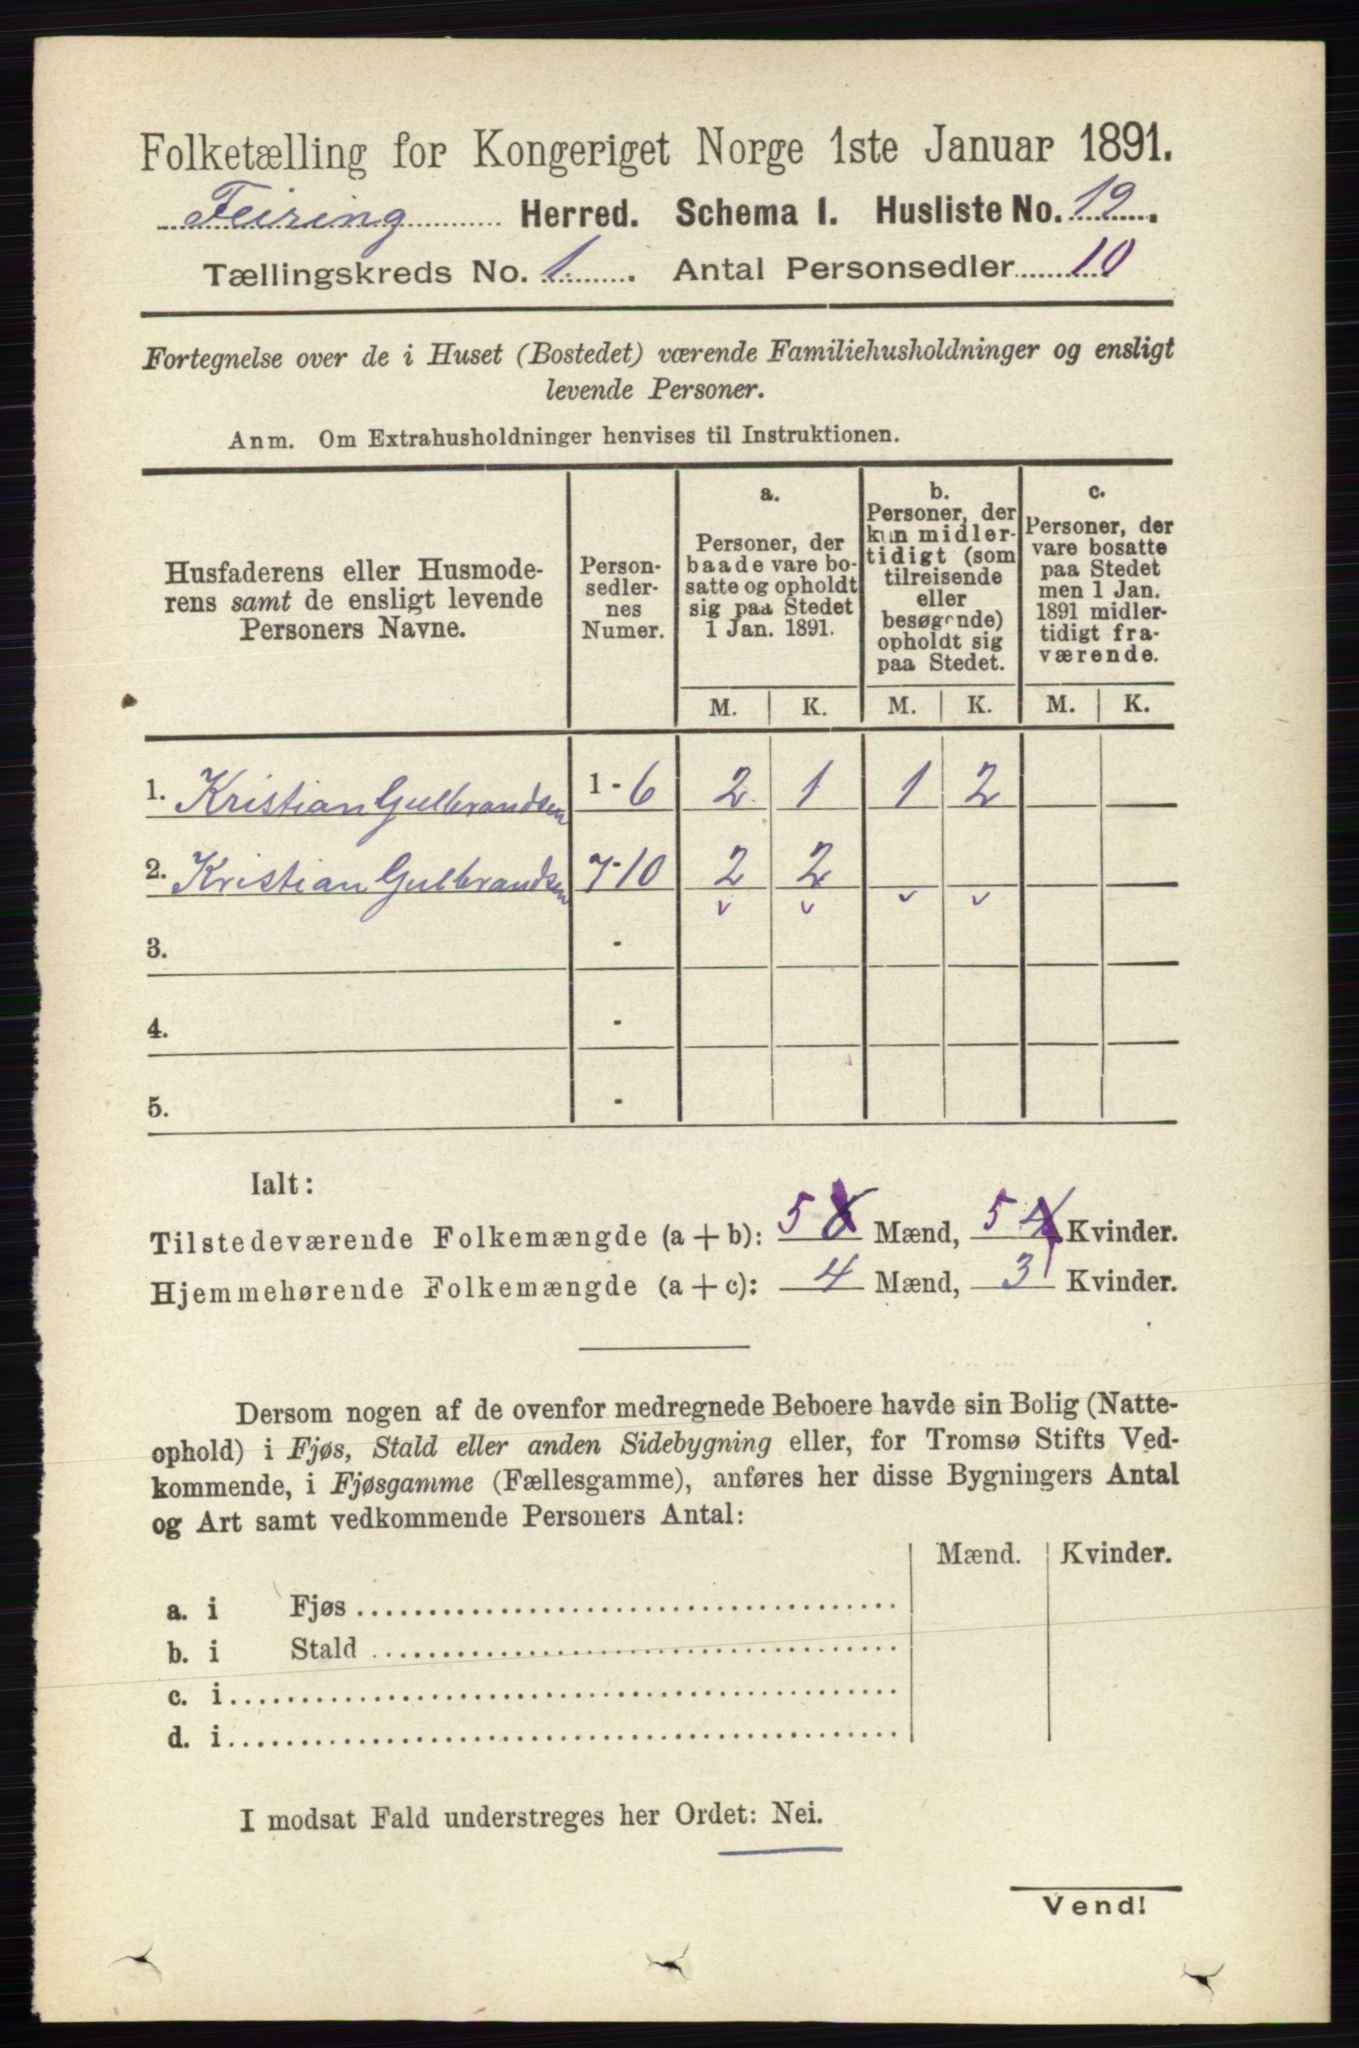 Folketælling for Kongeriget Norge 1ste Januar 1891.
Feiring Herred. Schema I. Husliste No. 19.
Tællingskreds No. 1. Antal Personsedler 10
Fortegnelse over de i Huset (Bostedet) værende Familiehusholdninger og ensligt
levende Personer.
Anm. Om Extrahusholdninger henvises til Instruktionen.
Husfaderens eller Husmode-
rens samt de ensligt levende
Personers Navne.
Person-
sedler-
nes
Numer.
a.
Personer, der
baade vare bo-
satte og opholdt
sig paa Stedet
1 Jan. 1891.
b.
Personer, der
kun midler-
tidigt (som
tilreisende
eller
besøgende)
opholdt sig
paa Stedet.
c.
Personer, der
vare bosatte
paa Stedet
men 1 Jan.
1891 midler-
tidigt fra-
værende.
M. K. M. K. M. K.
1. Kristian Gulbrandsen 1-6 2 1 1 2
2. Kristian Gulbrandsen 7-10 2 2
v v v v
3. -
4. -
5. -
Ialt:
Tilstedeværende Folkemængde (a+b): 5 6 Mænd, 5 4 Kvinder.
Hjemmehørende Folkemængde (a+c): 4 Mænd, 3 Kvinder.
Dersom nogen af de ovenfor medregnede Beboere havde sin Bolig (Natte-
ophold) i Fjøs, Stald eller anden Sidebygning eller, for Tromsø Stifts Ved-
kommende, i Fjøsgamme (Fællesgamme), anføres her disse Bygningers Antal
og Art samt vedkommende Personers Antal:
Mænd. Kvinder.
a. i Fjøs
b. i Stald
c. i
d. i
I modsat Fald understreges her Ordet: Nei.
Vend!